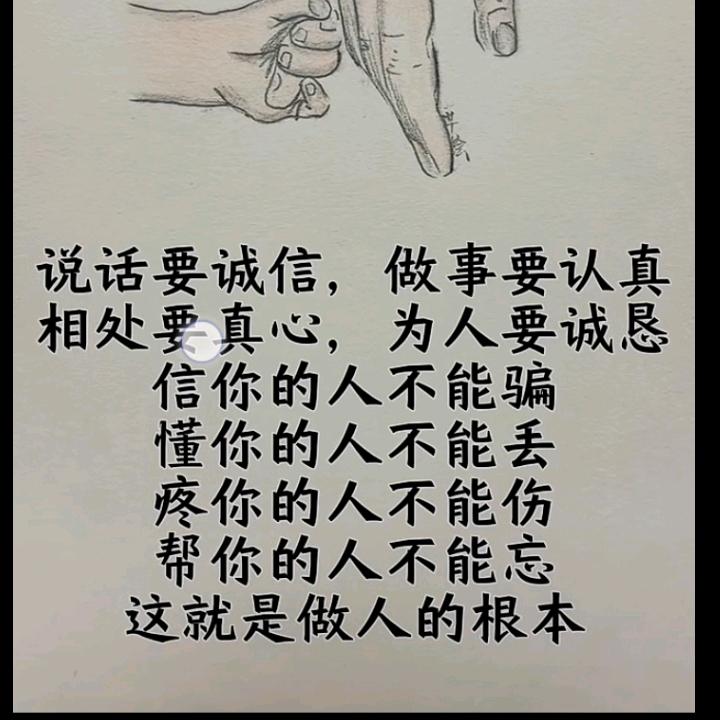 说话要诚信，做事要认真
相处要真心，为人要诚恳
信你的人不能骗
懂你的人不能丢
疼你的人不能伤
帮你的人不能忘
这就是做人的根本